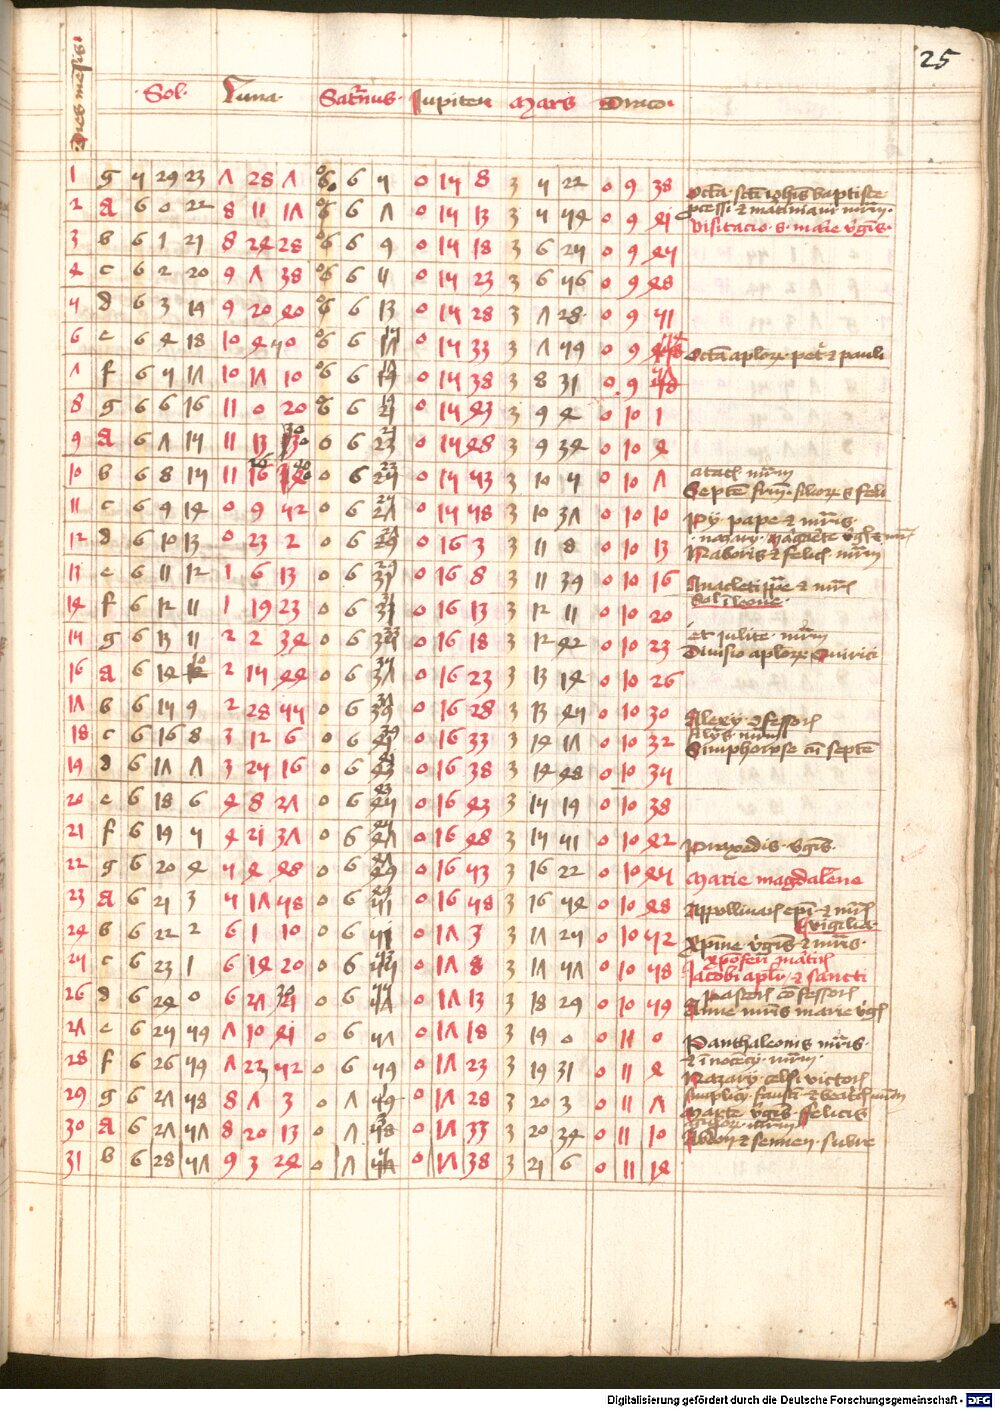 25
Dies mensis
Sol Luna Saturnus Jupiter Mars Draco
1 g 5 29 23 7 28 7 0 6 5 0 15 8 3 5 22 0 9 38 Octa scti iohis baptiste
2 A 6 0 22 8 11 17 0 6 7 0 15 13 3 5 54 0 9 41 pcessi et martiniani mrm
visitacio s marie vgis
3 b 6 1 21 8 24 28 0 6 9 0 15 18 3 6 25 0 9 45
4 c 6 2 20 9 7 38 0 6 11 0 15 23 3 6 56 0 9 48
5 d 6 3 19 9 20 40 0 6 13 0 15 28 3 7 28 0 9 51
6 e 6 4 18 10 4 50 0 6 15 0 15 33 3 7 59 0 9 55 Octa aplorx pet et pauli
7 f 6 5 17 10 17 10 0 6 17 0 15 38 3 8 31 0 9 58
8 g 6 6 16 11 0 20 0 6 19 0 15 43 3 9 4 0 10 1
9 A 6 7 15 11 13 30 0 6 21 0 15 48 3 9 34 0 10 4
10 b 6 8 15 11 26 40 0 6 23 0 15 53 3 10 5 0 10 7 Septe frm filiorx s feli
11 c 6 9 14 0 9 52 0 6 25 0 15 58 3 10 37 0 10 10 Py pape et mris
12 d 6 10 13 0 23 2 0 6 27 0 16 3 3 11 8 0 10 13 Naboris et felicis mrm
13 e 6 11 12 1 6 13 0 6 29 0 16 8 3 11 39 0 10 16 Anacleti ppe et mris
Sol i leone
14 f 6 12 11 1 19 23 0 6 31 0 16 13 3 12 11 0 10 20
et Julite mrm
15 g 6 13 11 2 2 34 0 6 33 0 16 18 3 12 42 0 10 23 Divisio aplorx Quirici
16 A 6 14 10 2 15 44 0 6 35 0 16 23 3 13 14 0 10 26
17 b 6 15 9 2 28 55 0 6 37 0 16 28 3 13 45 0 10 30 Alexy cfessoris
18 c 6 16 8 3 12 6 0 6 39 0 16 33 3 14 17 0 10 32 Simphorose cu septe
19 d 6 17 7 3 25 16 0 6 41 0 16 38 3 14 48 0 10 35
20 e 6 18 6 4 8 27 0 6 43 0 16 43 3 15 19 0 10 38
21 f 6 19 5 4 21 37 0 6 45 0 16 48 3 15 51 0 10 42 Praxedis vgis
22 g 6 20 4 5 4 48 0 6 47 0 16 53 3 16 22 0 10 45 Marie magdalene
23 A 6 21 3 5 17 58 0 6 49 0 16 58 3 16 54 0 10 48 Appollinaris epi et mris
vigilia
24 b 6 22 2 6 1 10 0 6 51 0 17 3 3 17 25 0 10 52 Xpine vgis et mris
25 c 6 23 1 6 14 20 0 6 53 0 17 8 3 17 57 0 10 58 Jacobi apli et sancti
xpoferi matiris
26 d 6 24 0 6 27 30 0 6 55 0 17 13 3 18 29 0 10 59 Anne mris marie vgis
Pastoris confessoris
27 e 6 25 59 7 10 41 0 6 57 0 17 18 3 19 0 0 11 0 Panthaleonis mris
28 f 6 26 59 7 23 52 0 6 59 0 17 23 3 19 31 0 11 4 Nazary celsi victoris
et inocecy mrm
29 g 6 27 58 8 7 3 0 7 0 17 28 3 20 3 0 11 7 Marte vgis felicis
simplicy fausti et beatricis mrm
30 A 6 27 57 8 20 13 0 7 0 17 33 3 20 34 0 11 10 Abdon et sennen
31 b 6 28 57 9 3 24 0 7 0 17 38 3 21 6 0 11 14
Digitalisierung gefördert durch die Deutsche Forschungsgemeinschaft - DFG